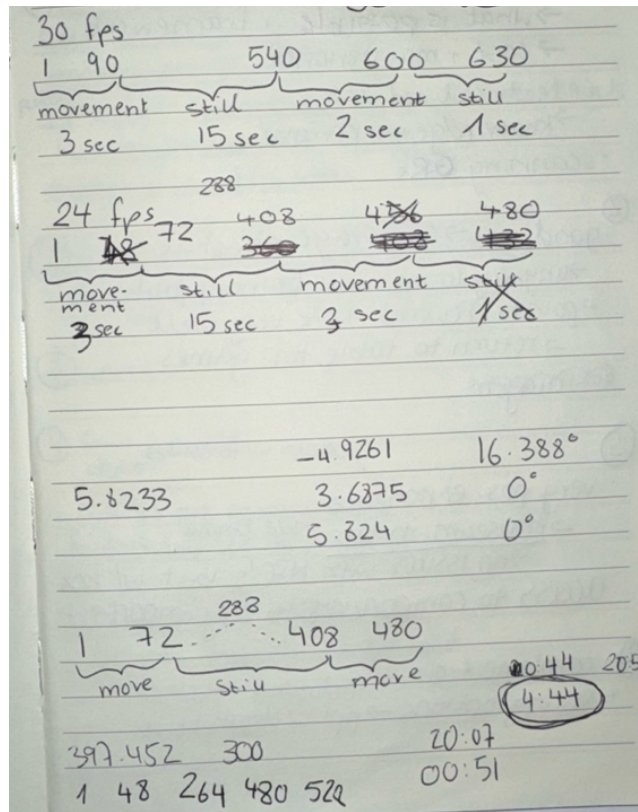 30 fps
1 90 540 600 630
movement still movement still
3 sec 15 sec 2 sec 1 sec
288
24 fps 72 408 456 480
1 48 360 408 432
move-ment still movement still
3 sec 15 sec 3 sec 1 sec
-4.9261 16.388°
5.8233 3.6875 0°
5.824 0°
288
1 72 408 480
move still move
20:44
4:44
397.452 300 20:07
00:51
1 48 264 480 522